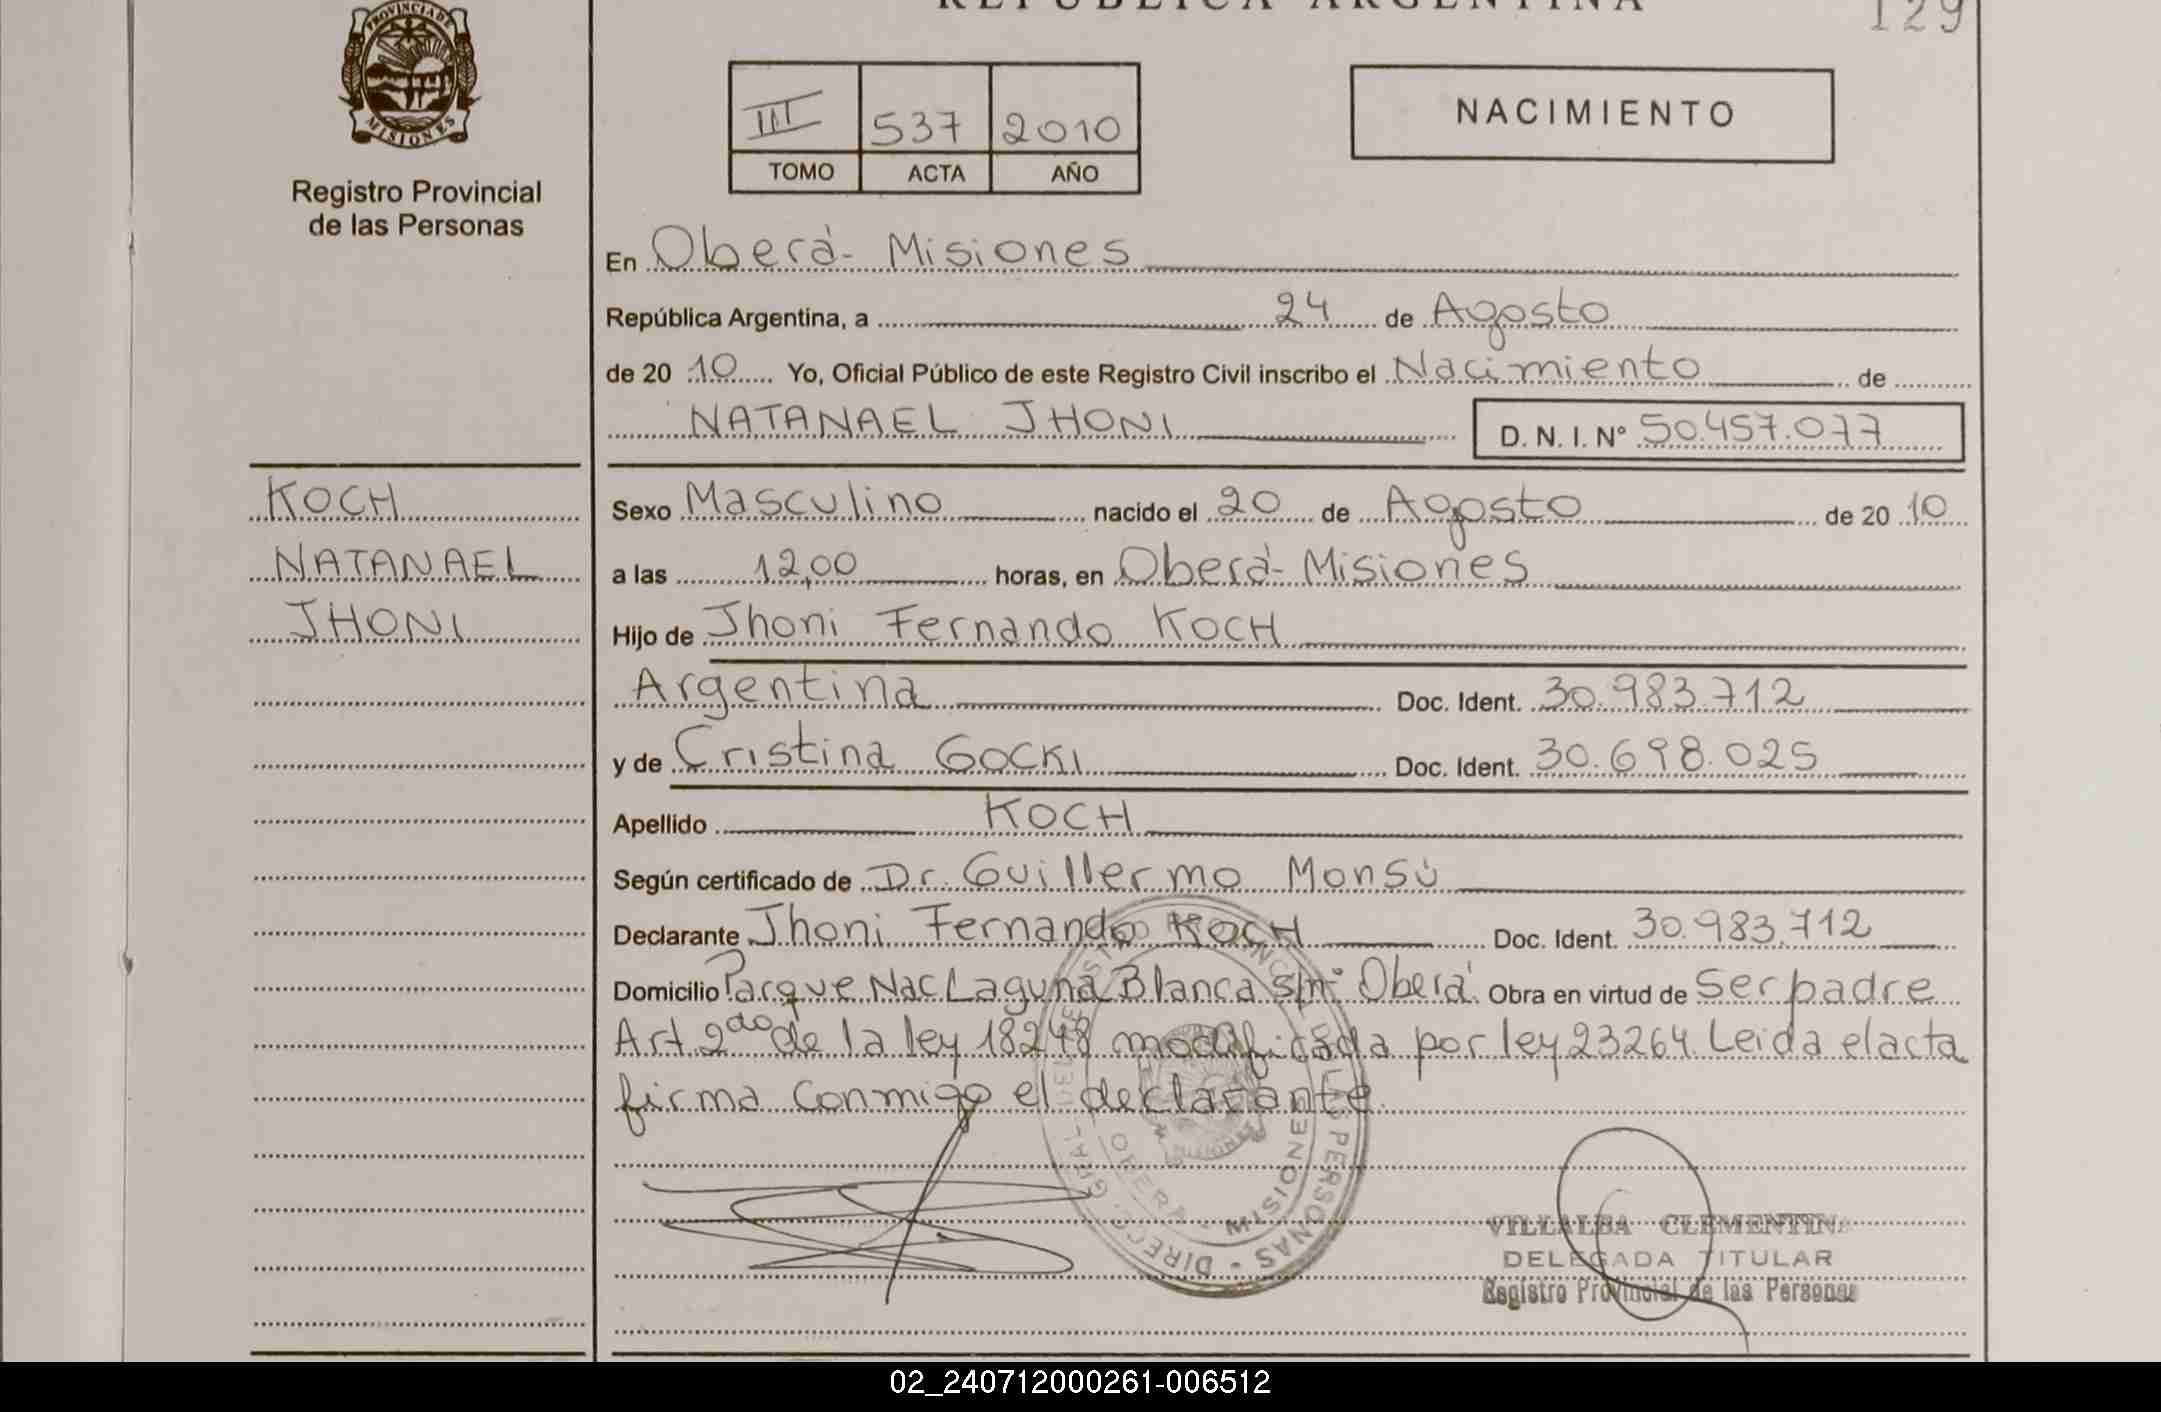 REPUBLICA ARGENTINA
129
PROVINCIA DE
MISIONES
Registro Provincial
de las Personas
III 537 2010
TOMO ACTA AÑO
NACIMIENTO
En Oberá- Misiones
República Argentina, a 24 de Agosto
de 20 10 Yo, Oficial Público de este Registro Civil inscribo el Nacimiento de
NATANAEL JHONI D. N. I. Nº 50.457.077
KOCH
NATANAEL
JHONI
Sexo Masculino nacido el 20 de Agosto de 20 10
a las 12,00 horas, en Oberá- Misiones
Hijo de Jhoni Fernando KOCH
Argentina Doc. Ident. 30.983.712
y de Cristina GOCKI Doc. Ident. 30.698.025
Apellido KOCH
Según certificado de Dr. Guillermo Monsú
Declarante Jhoni Fernando KOCH Doc. Ident. 30.983.712
Domicilio Parque Nac Laguna Blanca s/nº Oberá. Obra en virtud de Ser padre
Art. 2do de la ley 18248 modificada por ley 23264. Leida el acta
firma conmigo el declarante.
OBERA - MISIONES
PERSONAS
VILLALBA CLEMENTINA
DELEGADA TITULAR
Registro Provincial de las Personas
02_240712000261-006512